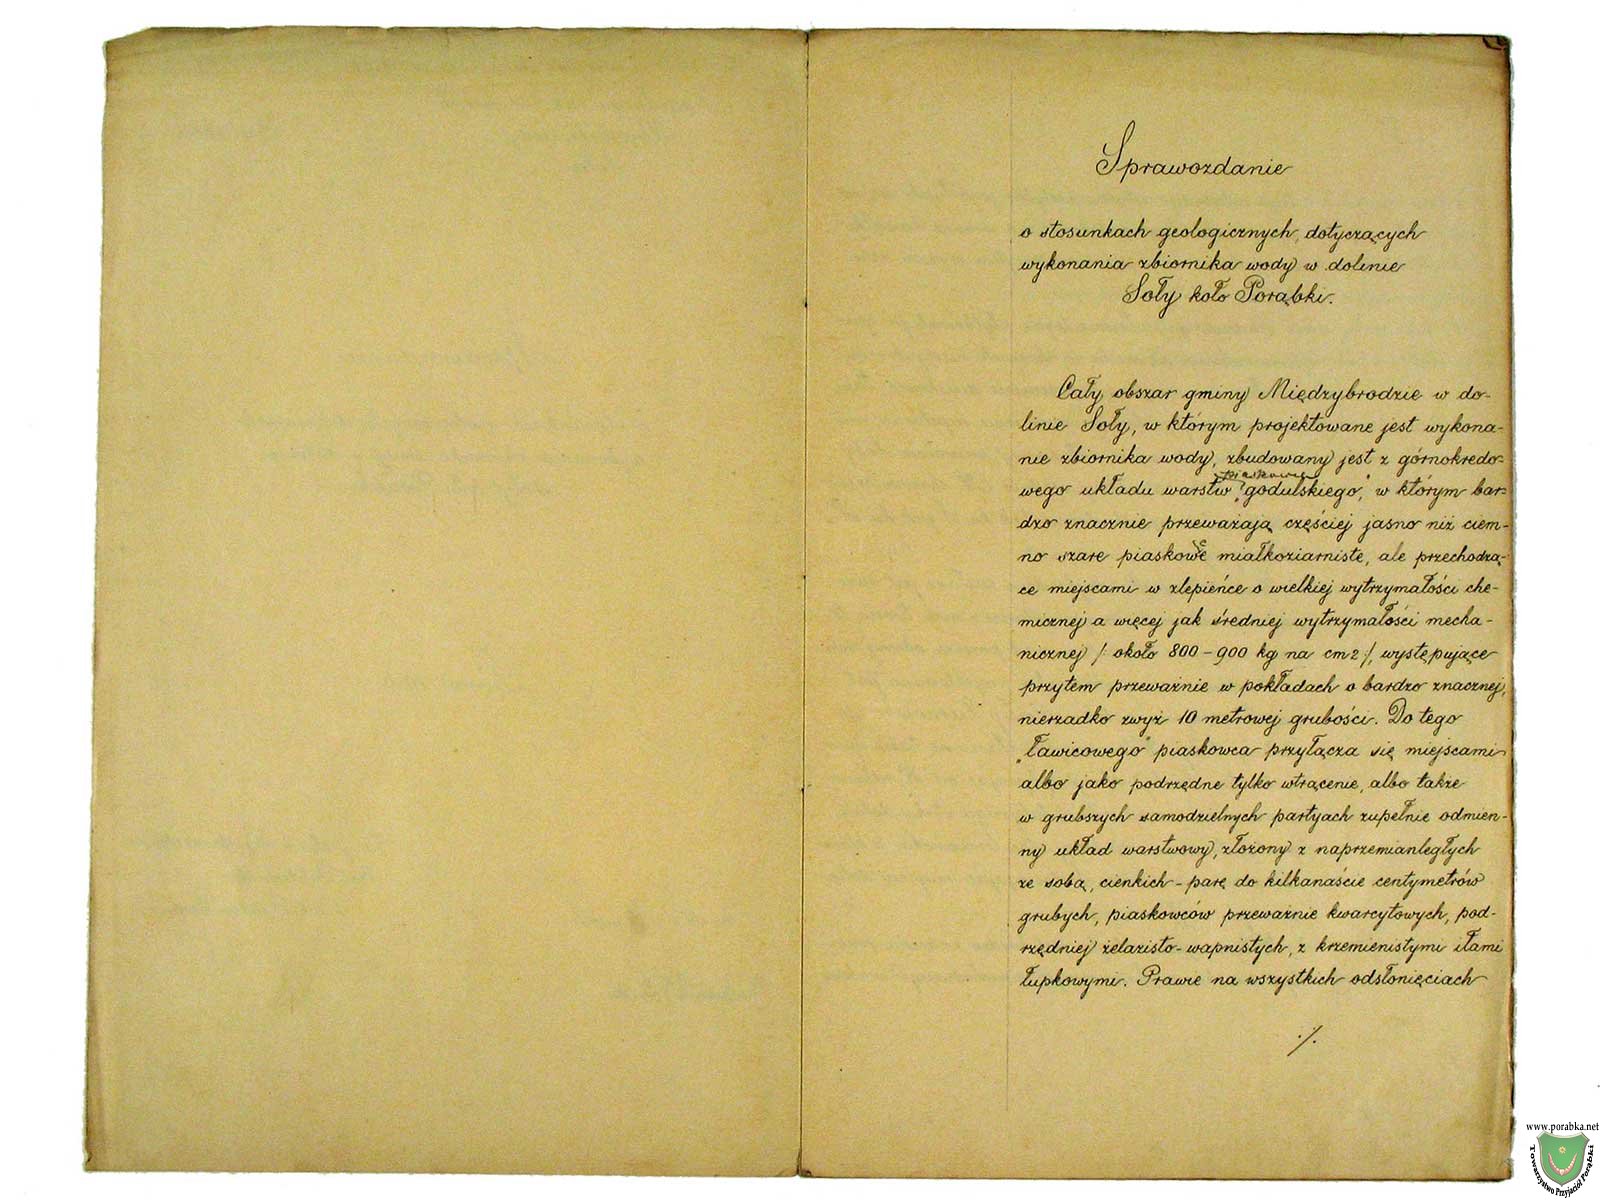 Sprawozdanie
o stosunkach geologicznych, dotyczących
wykonania zbiornika wody w dolinie
Soły koło Porąbki.
Cały obszar gminy Międzybrodzie w do-
linie Soły, w którym projektowane jest wykona-
nie zbiornika wody, zbudowany jest z górnokredo-
piaskowca
wego układu warstw „godulskiego", w którym bar-
dzo znacznie przeważają częściej jasno niż ciem-
no szare piaskowce miałkoziarniste, ale przechodzą-
ce miejscami w zlepieńce o wielkiej wytrzymałości che-
micznej a więcej jak średniej wytrzymałości mecha-
nicznej /: około 800 - 900 kg na cm2 :/, występujące
przytem przeważnie w pokładach o bardzo znacznej,
nierzadko zwyż 10 metrowej grubości. Do tego
„ławicowego" piaskowca przyłącza się miejscami
albo jako podrzędne tylko wtrącenie, albo także
w grubszych samodzielnych partyach zupełnie odmien-
ny układ warstwowy, złożony z naprzemianległych
ze sobą, cienkich - parę do kilkanaście centymetrów
grubych, piaskowców przeważnie kwarcytowych, pod-
rzędniej żelazisto-wapnistych, z krzemienistymi iłami
łupkowymi. Prawie na wszystkich odsłonięciach
./.
www.porabka.net
Towarzystwo Przyjaciół Porąbki